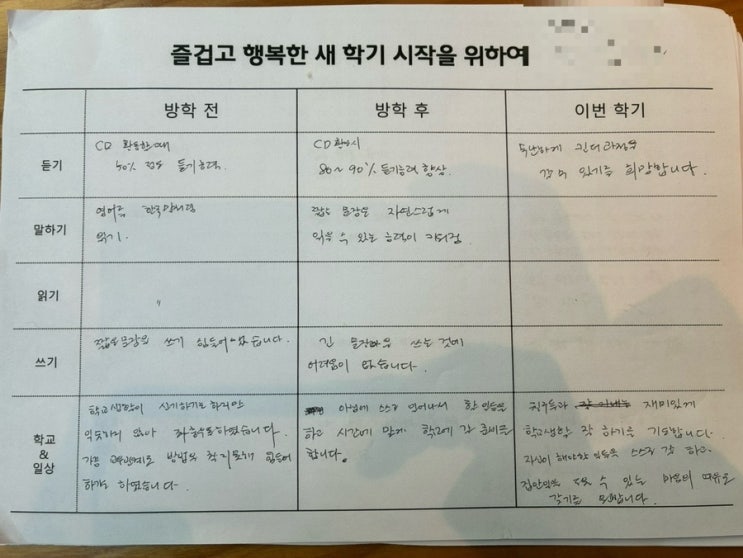 즐겁고 행복한 새 학기 시작을 위하여
방학 전
방학 후
이번 학기
듣기
CD 활동할때
50% 정도 듣기능력.
CD 활동시
80~90% 듣기능력 향상.
무난하게
있기를 희망합니다.
말하기
영어를
읽기.
짧은 문장을 자연스럽게
읽을 수 있는 능력이
읽기
〃
쓰기
짧은 문장을 쓰기 힘들어 했습니다.
긴 문장 쓰는 것에
어려움이 없습니다.
학교
&
일상
학교생활이 신기하기는 하지만
익숙하지 않아 하였습니다.
가끔 힘들어
하기도 하였습니다.
아침에 스스로 일어나서 할 일들을
하고 시간에 맞게 학교에 갈 준비를
합니다.
친구들과 재미있게
학교생활 잘 하기를 기도합니다.
자신이 해야할 일들을 스스로 잘 하고
집안일을 도울 수 있는 마음의 여유도
갖기를 바랍니다.